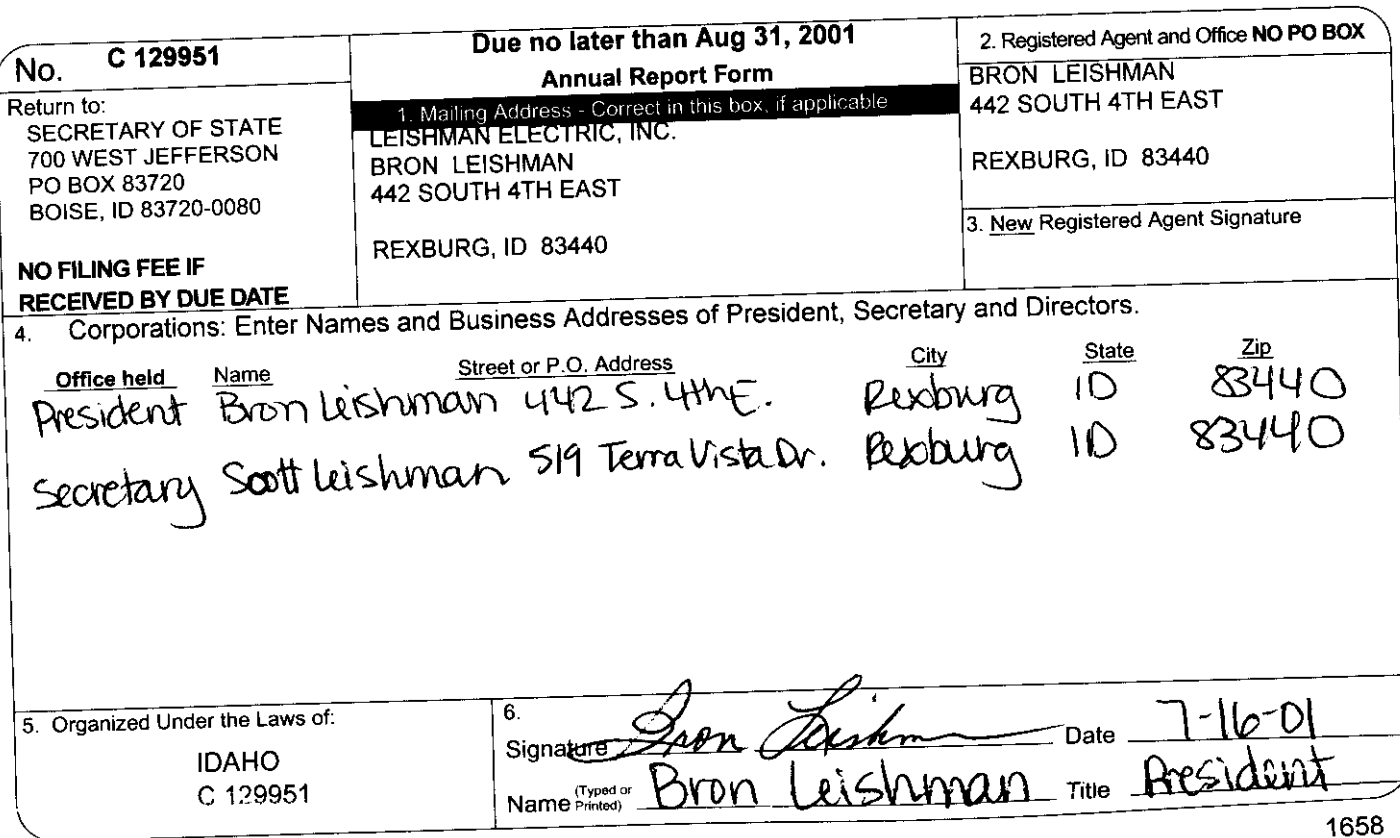 No. C 129951
Return to:
SECRETARY OF STATE
700 WEST JEFFERSON
PO BOX 83720
BOISE, ID 83720-0080
NO FILING FEE IF
RECEIVED BY DUE DATE
Due no later than Aug 31, 2001
Annual Report Form
1. Mailing Address - Correct in this box, if applicable
LEISHMAN ELECTRIC, INC.
BRON LEISHMAN
442 SOUTH 4TH EAST
REXBURG, ID 83440
2. Registered Agent and Office NO PO BOX
BRON LEISHMAN
442 SOUTH 4TH EAST
REXBURG, ID 83440
3. New Registered Agent Signature
4. Corporations: Enter Names and Business Addresses of President, Secretary and Directors.
Office held Name Street or P.O. Address City State Zip
President Bron Leishman 442 S. 4th E. Rexburg ID 83440
Secretary Scott Leishman 519 Terra Vista Dr. Rexburg ID 83440
5. Organized Under the Laws of:
IDAHO
C 129951
6.
Signature Bron Leishman Date 7-16-01
Name (Typed or Printed) Bron Leishman Title President
1658